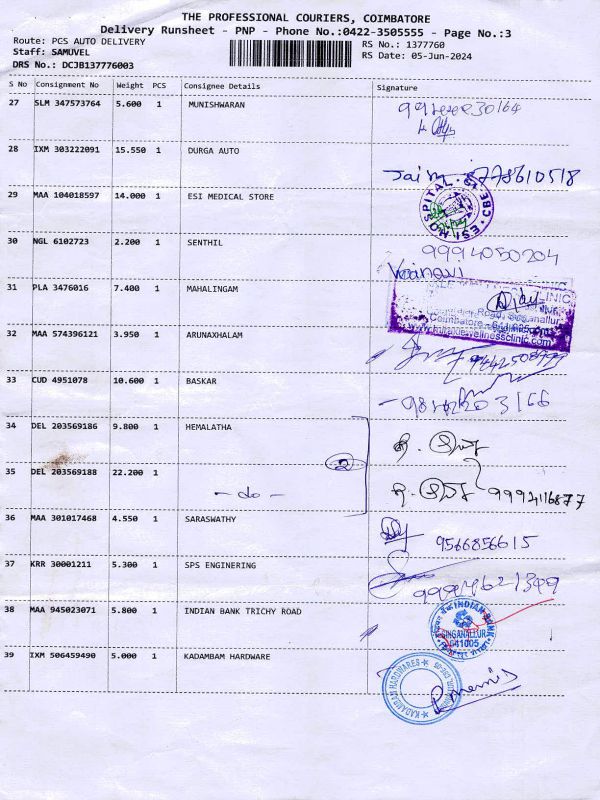 THE PROFESSIONAL COURIERS, COIMBATORE
Delivery Runsheet - PNP - Phone No.:0422-3505555 - Page No.:3
Route: PCS AUTO DELIVERY
RS No.: 1377760
Staff: SAMUVEL
RS Date: 05-Jun-2024
DRS No.: DCJB137776003
S No Consignment No Weight PCS Consignee Details Signature
27 SLM 347573764 5.600 1 MUNISHWARAN
28 IXM 303222091 15.550 1 DURGA AUTO
8778610518
29 MAA 104018597 14.000 1 ESI MEDICAL STORE
HOSPITAL CBE-15 ESI
30 NGL 6102723 2.200 1 SENTHIL 9994050204
31 PLA 3476016 7.400 1 MAHALINGAM
CLINIC
Road, Singanallur,
Coimbatore
32 MAA 574396121 3.950 1 ARUNAXHALAM
33 CUD 4951078 10.600 1 BASKAR
34 DEL 203569186 9.800 1 HEMALATHA
2
35 DEL 203569188 22.200 1
- do - 9994116877
36 MAA 301017468 4.550 1 SARASWATHY
9566856615
37 KRR 30001211 5.300 1 SPS ENGINERING
38 MAA 945023071 5.800 1 INDIAN BANK TRICHY ROAD
INDIAN BANK
SINGANALLUR
641005
39 IXM 506459490 5.000 1 KADAMBAM HARDWARE
KADAMBAM HARDWARES